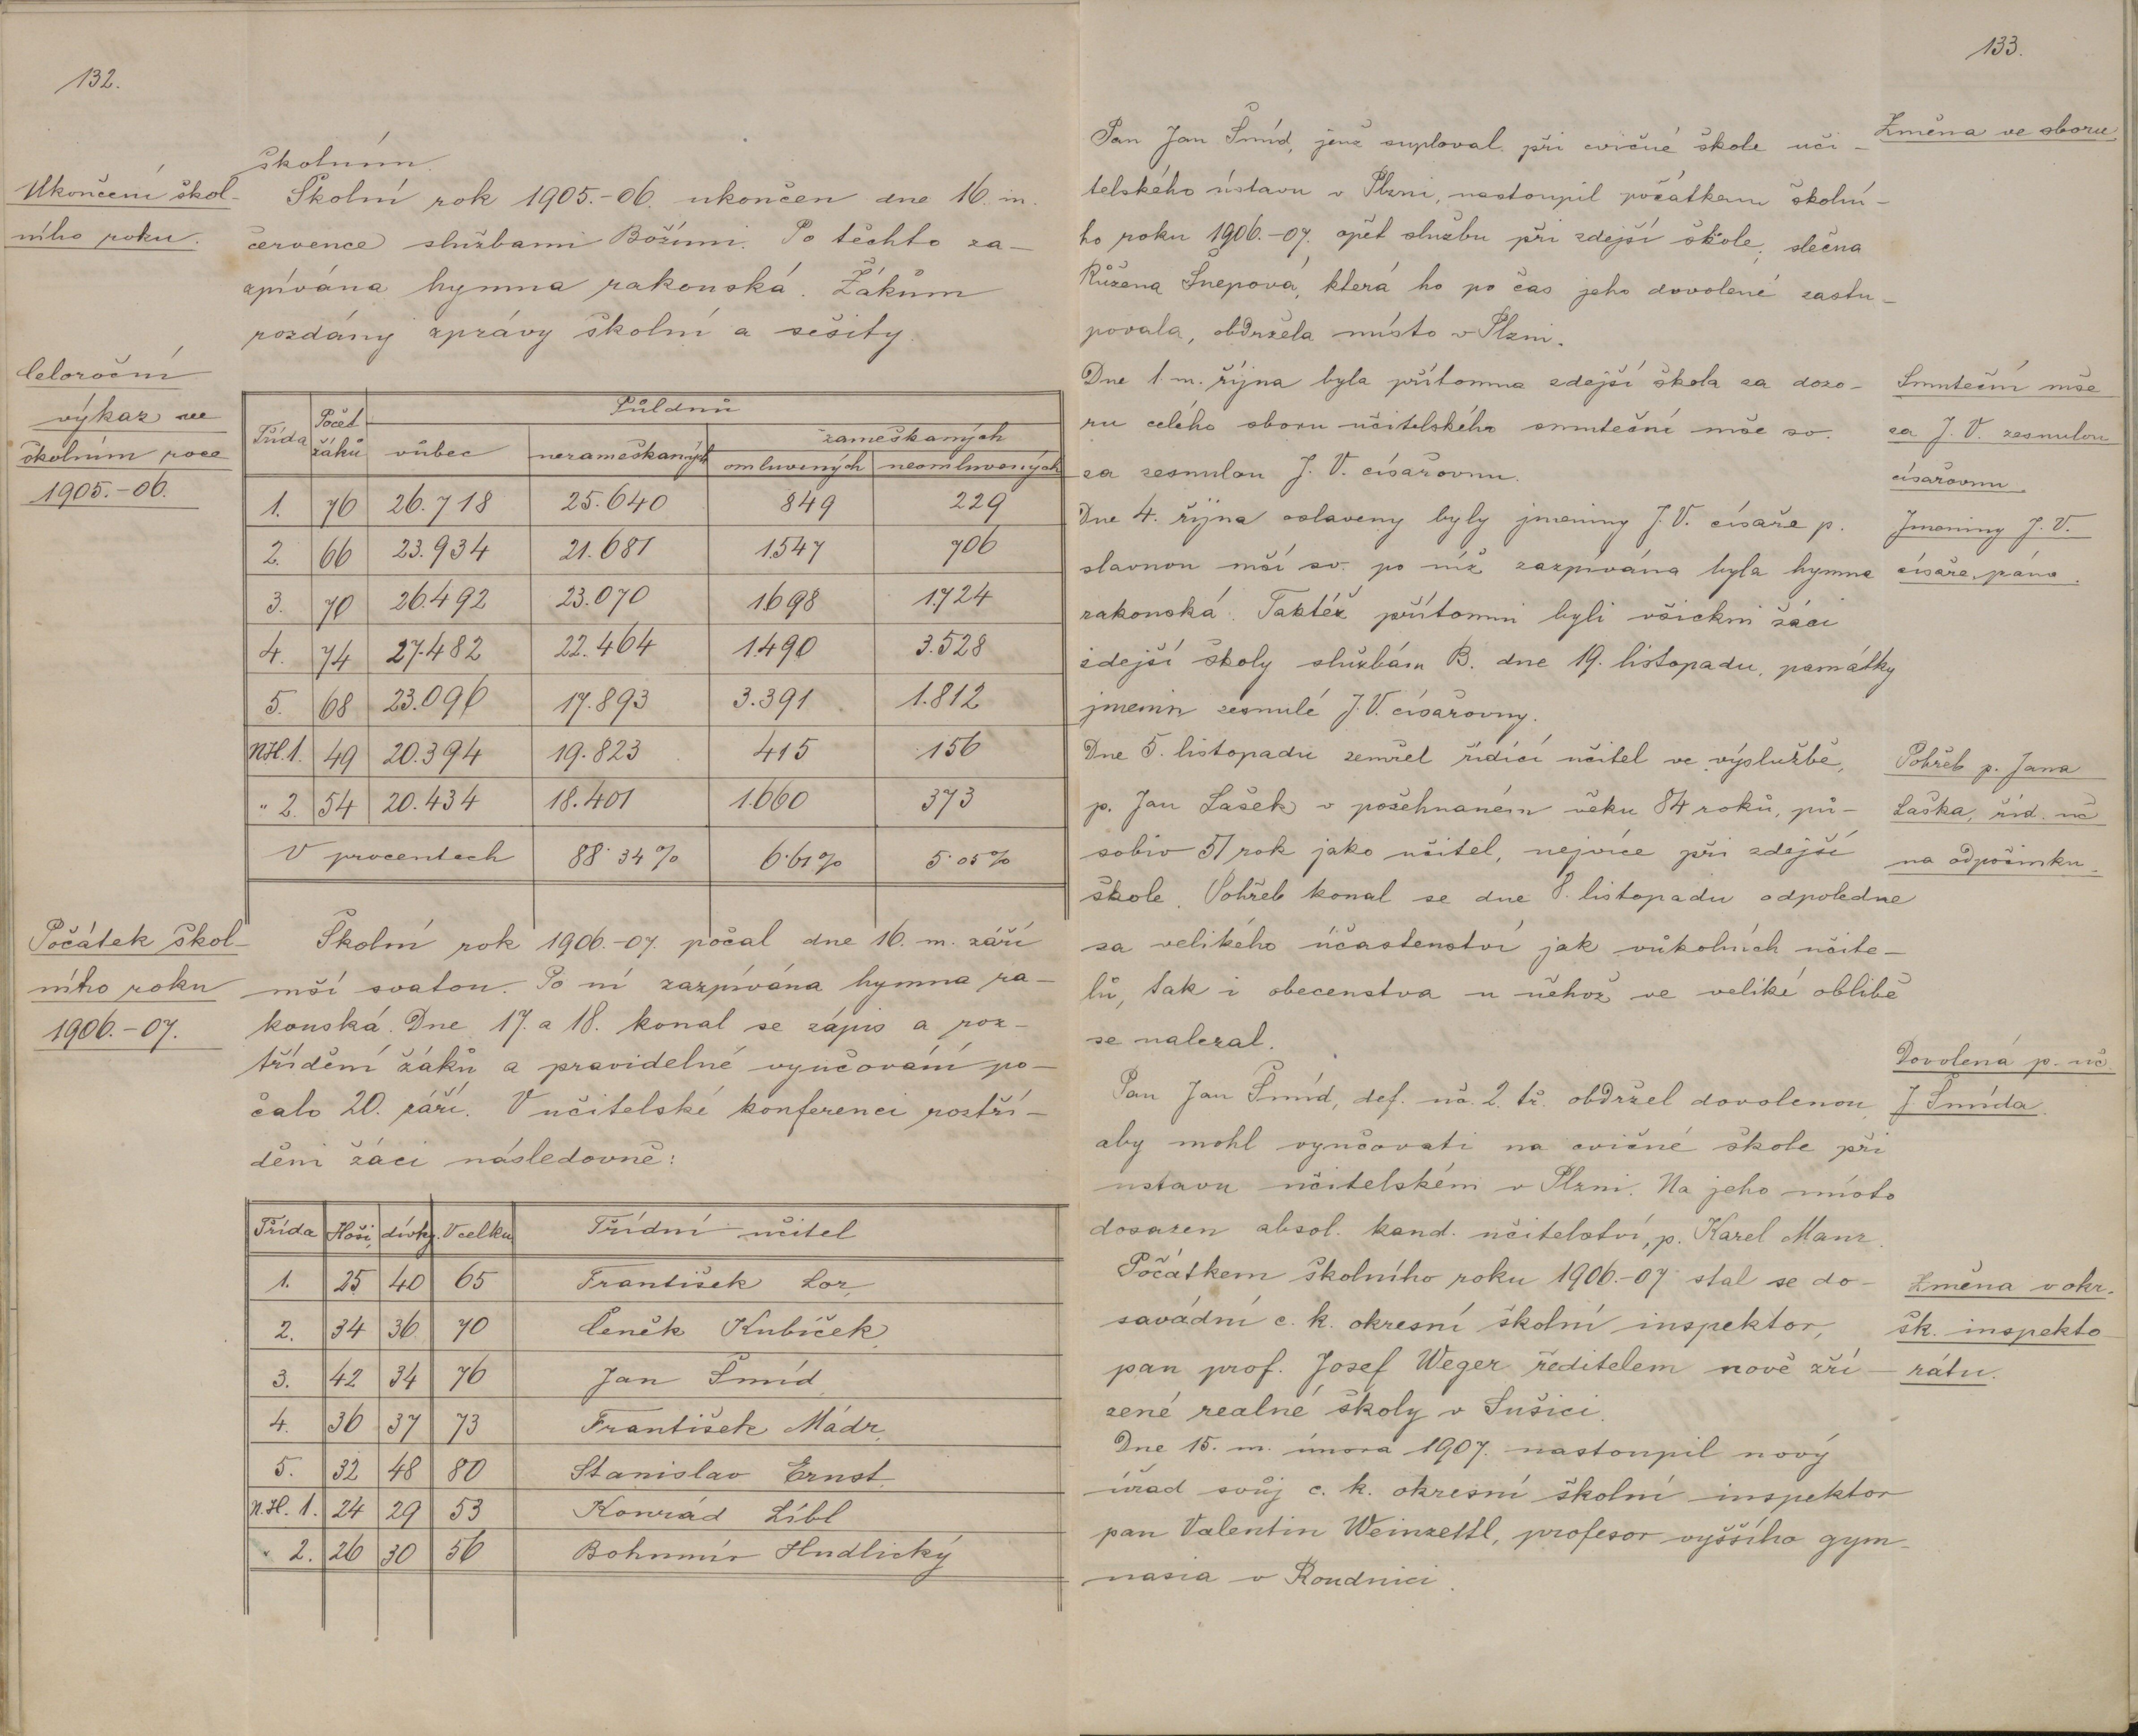 132.
školním.
Ukončení škol-
ního roku.
Školní rok 1905.-06. ukončen dne 16. m.
července službami Božími. Po těchto za-
zpívána hymna rakouská. Žákům
rozdány zprávy školní a sešity.
Celoroční
výkaz ve
školním roce
1905.-06.
Třída Počet žáků Půldnů
vůbec nezameškaných zameškaných
omluvených neomluvených
1. 76 26.718 25.640 849 229
2. 66 23.934 21.681 1547 706
3. 70 26.492 23.070 1698 1.724
4. 74 27.482 22.464 1.490 3.528
5. 68 23.096 17.893 3.391 1.812
N.H.1. 49 20.394 19.823 415 156
" 2. 54 20.434 18.401 1.660 373
V procentech 88.34% 6.61% 5.05%
Počátek škol-
ního roku
1906.-07.
Školní rok 1906.-07. počal dne 16. m. září
mší svatou. Po ní zazpívána hymna ra-
kouská. Dne 17. a 18. konal se zápis a roz-
třídění žáků a pravidelné vyučování po-
čalo 20. září. V učitelské konferenci roztří-
děni žáci následovně:
Třída Hoši, dívky. Vcelku Třídní učitel
1. 25 40 65 František Lor,
2. 34 36 70 Čeněk Kubíček,
3. 42 34 76 Jan Šmíd,
4. 36 37 73 František Mádr,
5. 32 48 80 Stanislav Ernst,
N.H. 1. 24 29 53 Konrád Líbl
" 2. 26 30 56 Bohumír Hudlický
133.
Pan Jan Šmíd, jenž suploval při cvičné škole uči-
telského ústavu v Plzni, nastoupil počátkem školní-
ho roku 1906.-07. opět službu při zdejší škole; slečna
Růžena Šnepová, která ho po čas jeho dovolené zastu-
povala, obdržela místo v Plzni.
Změna ve sboru
Dne 1. m. října byla přítomna zdejší škola za dozo-
ru celého sboru učitelského smuteční mše sv.
za zesnulou J. V. císařovnu.
Smuteční mše
za J. V. zesnulou
císařovnu.
Dne 4. října oslaveny byly jmeniny J. V. císaře p.
slavnou mší sv. po níž zazpívána byla hymna
rakouská. Taktéž přítomni byli všickni žáci
zdejší školy službám B. dne 19. listopadu, památky
jmenin zesnulé J. V. císařovny.
Jmeniny J. V.
císaře pána.
Dne 5. listopadu zemřel řídící učitel ve výslužbě,
p. Jan Lašek v požehnaném věku 84 roků, pů-
sobiv 51 rok jako učitel, nejvíce při zdejší
škole. Pohřeb konal se dne 8. listopadu odpoledne
za velikého účastenství jak vůkolních učite-
lů, tak i obecenstva u něhož ve veliké oblibě
se nalezal.
Pohřeb p. Jana
Laška, říd. uč
na odpočinku.
Pan Jan Šmíd, def. uč. 2. tř. obdržel dovolenou
aby mohl vyučovati na cvičné škole při
ustavu učitelském v Plzni. Na jeho místo
dosazen absol. kand. učitelství, p. Karel Manz.
Dovolená p. uč.
J. Šmída.
Počátkem školního roku 1906.-07 stal se do-
savádní c. k. okresní školní inspektor,
pan prof. Josef Weger ředitelem nově zří-
zené realné školy v Sušici.
Dne 15. m. února 1907. nastoupil nový
úřad svůj c. k. okresní školní inspektor
pan Valentin Weinzettl, profesor vyššího gym-
nasia v Roudnici.
Změna v okr.
šk. inspekto-
rátu.